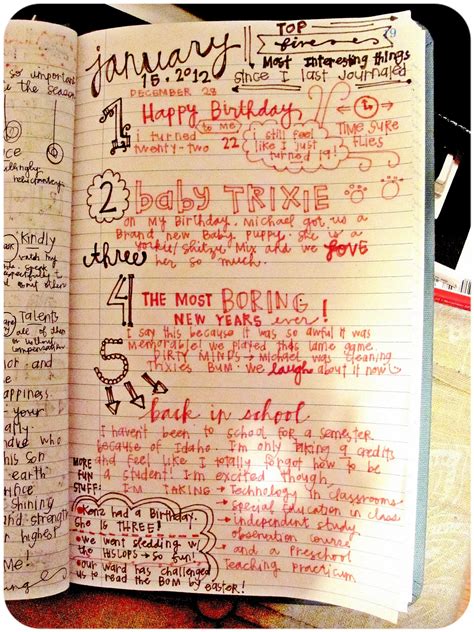 so important
the season
Kindly
Talents
all of other
or without
compensation
or and
appiness.
your
said
this son
earth
since
and strength
others!
me!
79
january
15.2012
TOP
fives
Most interesting things
since I last journaled
DECEMBER 28
1
Happy Birthday
to me
i turned
twenty-two 22
i still feel
like I just
turned 19!
TIME SURE
FLIES
2
baby TRIXIE
on my Birthday. Michael got us a
Brand new Baby Puppy. She is a
Yorkie/Shitzu Mix and we LOVE
her so much.
three
4
THE MOST BORING
NEW YEARS ever!
I say this because it was so awful it was
memorable! we played this lame game
DIRTY MINDS → Michael was cleaning
Trixies Bum. we laugh about it now
5
back in school
I haven't been to school for a semester
because of Idaho. I'm only taking 9 credits
and feel like I totally forgot how to be
a student! I'm excited though,
I'm TAKING → Technology in classrooms
• Special Education in class
• independent study
observation course
• and a Preschool
Teaching practicum
MORE
FUN
STUFF!
• Kenz had a Birthday.
She IS THREE!
• we went sledding w/
the Hislops → so fun!
• our ward has challenged
us to read the BOM by easter!